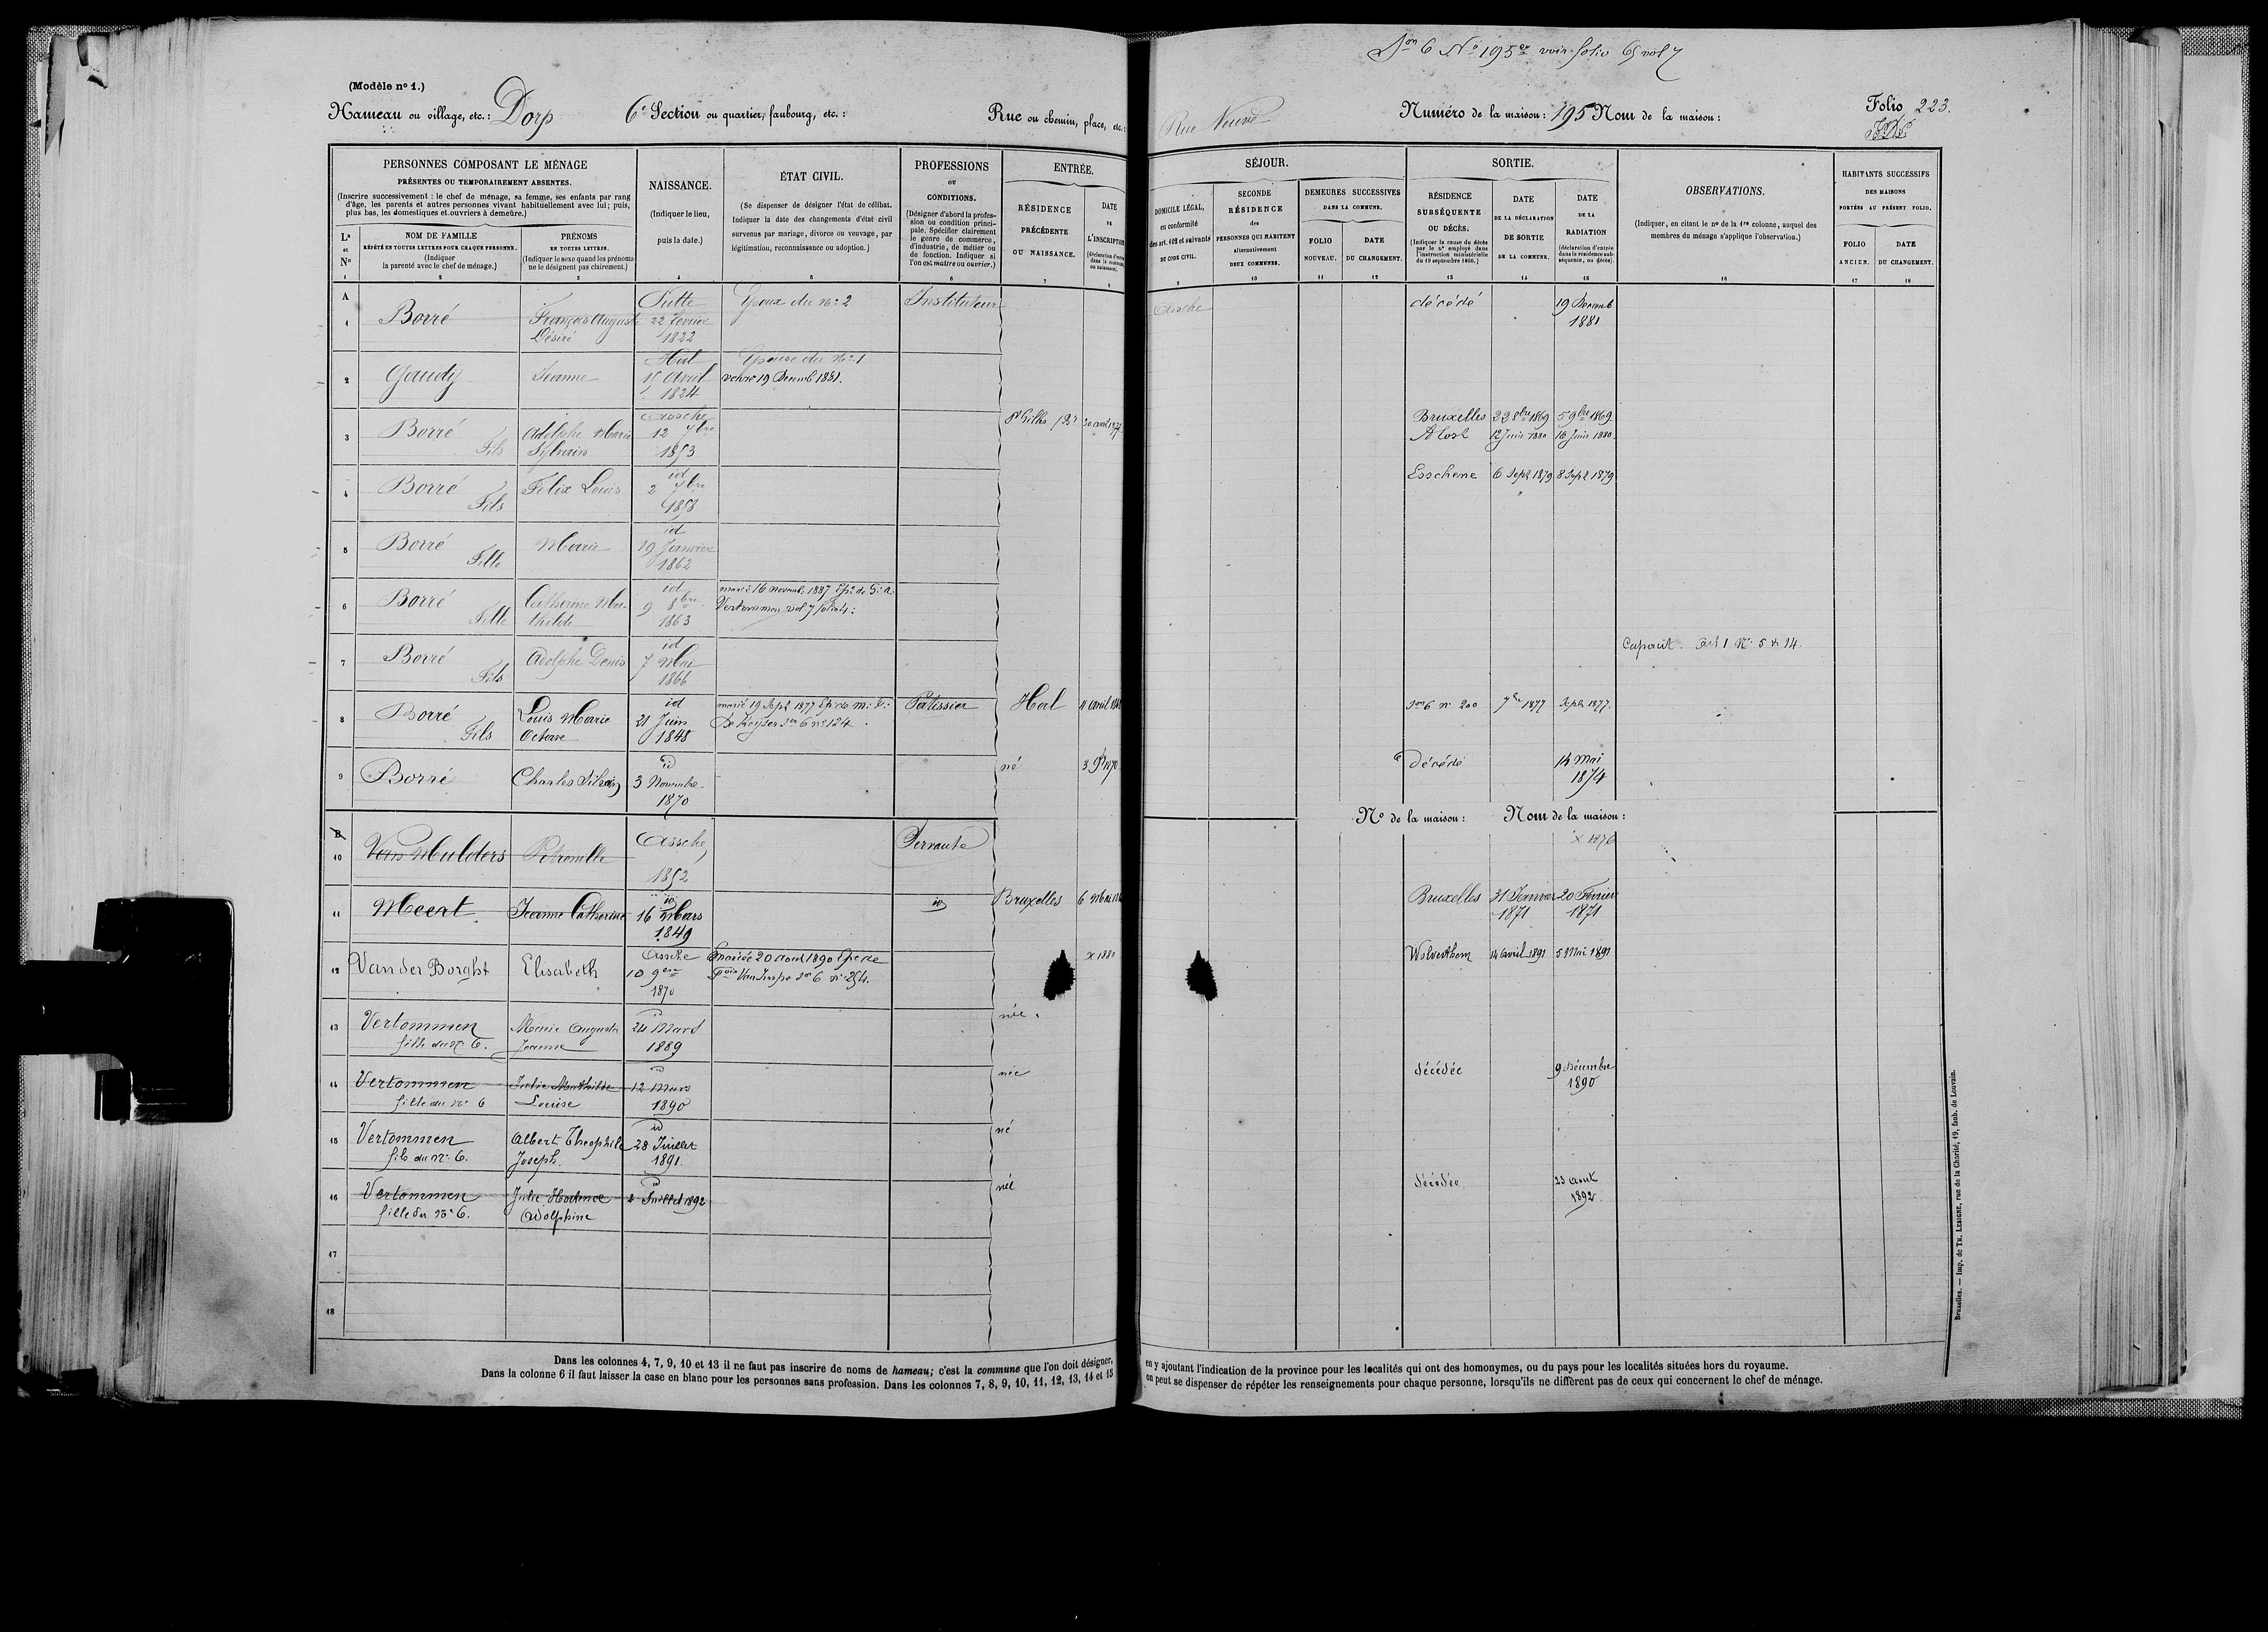 Son 6 No 195 voir folio 65 vol 7
(Modèle no 1.)
Hameau ou village, etc.: Dorp 6e Section ou quartier, faubourg, etc.: Rue ou chemin, place, etc.: Rue Neuve Numéro de la maison: 195 Nom de la maison: Folio 223.
PERSONNES COMPOSANT LE MÉNAGE
PRÉSENTES OU TEMPORAIREMENT ABSENTES.
(Inscrire successivement : le chef de ménage, sa femme, ses enfants par rang
d'âge, les parents et autres personnes vivant habituellement avec lui; puis,
plus bas, les domestiques et ouvriers à demeure.)
Ls et No
1
NOM DE FAMILLE
RÉPÉTÉ EN TOUTES LETTRES POUR CHAQUE PERSONNE.
(Indiquer
la parenté avec le chef de ménage.)
2
PRÉNOMS
EN TOUTES LETTRES.
(Indiquer le sexe quand les prénoms
ne le désignent pas clairement.)
3
NAISSANCE.
(Indiquer le lieu,
puis la date.)
4
ÉTAT CIVIL.
(Se dispenser de désigner l'état de célibat.
Indiquer la date des changements d'état civil
survenus par mariage, divorce ou veuvage, par
légitimation, reconnaissance ou adoption.)
5
PROFESSIONS
OU
CONDITIONS.
(Désigner d'abord la profes-
sion ou condition princi-
pale. Spécifier clairement
le genre de commerce,
d'industrie, de métier ou
de fonction. Indiquer si
l'on est maître ou ouvrier.)
6
ENTRÉE.
RÉSIDENCE
PRÉCÉDENTE
OU NAISSANCE.
7
DATE
DE
L'INSCRIPTION
8
SÉJOUR.
DOMICILE LÉGAL,
en conformité
des art. 102 et suivants
DU CODE CIVIL.
9
SECONDE
RÉSIDENCE
des
PERSONNES QUI HABITENT
alternativement
DEUX COMMUNES.
10
DEMEURES SUCCESSIVES
DANS LA COMMUNE.
FOLIO
NOUVEAU.
11
DATE
DU CHANGEMENT.
12
SORTIE.
RÉSIDENCE
SUBSÉQUENTE
OU DÉCÈS.
(Indiquer la cause du décès
par le no employé dans
l'instruction ministérielle
du 19 septembre 1866.)
13
DATE
DE LA DÉCLARATION
DE SORTIE
DE LA COMMUNE.
14
DATE
DE LA
RADIATION
(déclaration d'entrée
dans la résidence sub-
séquente, ou décès).
15
OBSERVATIONS.
(Indiquer, en citant le no de la 1re colonne, auquel des
membres du ménage s'applique l'observation.)
16
HABITANTS SUCCESSIFS
DES MAISONS
PORTÉES AU PRÉSENT FOLIO.
FOLIO
ANCIEN.
17
DATE
DU CHANGEMENT.
18
A
1 Borré François Auguste Désiré Putte 22 Fevrier 1822 Epoux du No 2 Instituteur Assche décédé 19 Decemb 1881
2 Gaudy Jeanne Hal 15 Avril 1824 Epouse du No 1 veuve 19 Decemb 1881.
3 Borré Fils Adolphe Marie Sylvain Assche 12 7bre 1853 St Gilles 30 avril Bruxelles 22 8bre 1869 5 9bre 1869
Alost 12 Juin 1880 16 Juin 1880
4 Borré Fils Felix Louis id 2 7bre 1858 Esschene 6 Sept 1879 8 Sept 1879
5 Borré Fille Marie id 19 Janvier 1862
6 Borré Fille Catherine Mathilde id 9 8bre 1863 marié 16 Novemb. 1887 Epse de
Vertommen vol 7 folio 4.
7 Borré Fils Adolphe Denis id 7 Mai 1866 Art 1 No 5 & 14.
8 Borré Fils Louis Marie Octave id 21 Juin 1848 marié 19 Sept 1877 Epx de M.
De Keyser Son 6 no 124. Patissier Hal 11 avril Son 6 no 200 7bre 1877 Sept 1877
9 Borré Charles id 3 Novembre 1870 né 3 9bre 1870 Décédé 14 Mai 1874
No de la maison: Nom de la maison:
B
10 Van Mulders Petronille Assche 1852 Servante x 1876
11 Meert Jeanne Catherine id 16 Mars 1849 id Bruxelles 6 Bruxelles 31 Janvier 1871 20 Fevrier 1871
12 Van der Borght Elisabeth Assche 10 9bre 1870 mariée 20 aout 1890 Epse de
Van Impe Son 6 No 254. x 1880 Wolverthem 14 avril 1891 5 Mai 1891
13 Vertommen fille du No 6. Marie Augusta Jeanne id 24 Mars 1889 née
14 Vertommen fille du No 6 Julie Mathilde Louise id 12 Mars 1890 née décédée 9 Décembre 1890
15 Vertommen fils du No 6. Albert Theophile Joseph. id 28 Juillet 1891 né
16 Vertommen fille du No 6. Julie Hortence Adolphine id Juillet 1892 née décédée 23 Aout 1892
17
18
Dans les colonnes 4, 7, 9, 10 et 13 il ne faut pas inscrire de noms de hameau; c'est la commune que l'on doit désigner, en y ajoutant l'indication de la province pour les localités qui ont des homonymes, ou du pays pour les localités situées hors du royaume.
Dans la colonne 6 il faut laisser la case en blanc pour les personnes sans profession. Dans les colonnes 7, 8, 9, 10, 11, 12, 13, 14 et 15 on peut se dispenser de répéter les renseignements pour chaque personne, lorsqu'ils ne diffèrent pas de ceux qui concernent le chef de ménage.
Bruxelles. — Imp. de Th. Lesigne, rue de la Charité, 19, faub. de Louvain.